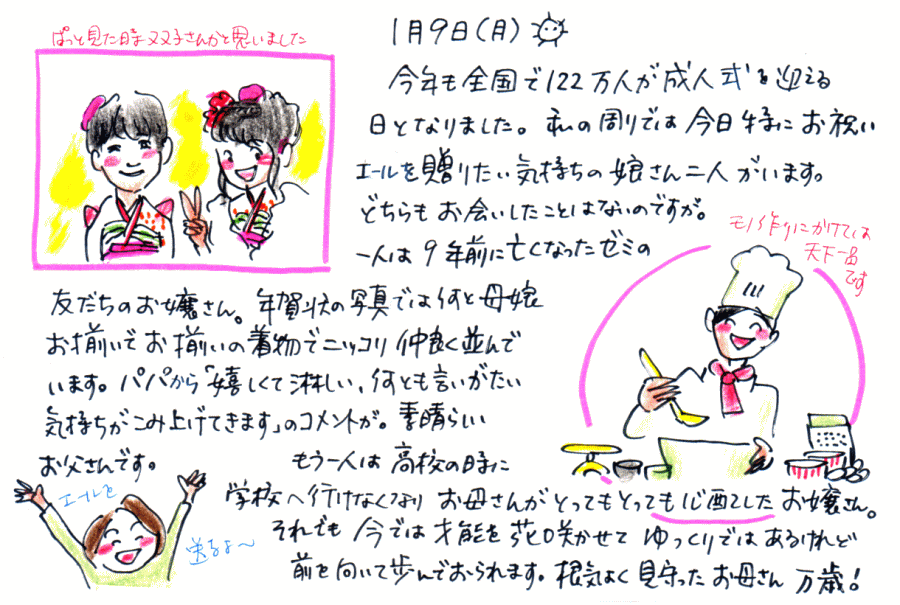 ぱっと見た時双子さんかと思いました
1月9日(月)
今年も全国で122万人が成人式を迎える
日となりました。私の周りでは今日特にお祝い
エールを贈りたい気持ちの娘さん二人がいます。
どちらもお会いしたことはないのですが。
一人は9年前に亡くなったゼミの
モノ作りにかけては
天下一品
です
友だちのお嬢さん。年賀状の写真では何と母娘
お揃いでお揃いの着物でニッコリ仲良く並んで
います。パパから「嬉しくて淋しい、何とも言いがたい
気持ちがこみ上げてきます」のコメントが。素晴らしい
お父さんです。
もう一人は高校の時に
学校へ行けなくなりお母さんがとってもとっても心配したお嬢さん。
それでも今では才能を花咲かせてゆっくりではあるけれど
前を向いて歩んでおられます。根気よく見守ったお母さん万歳!
エールを
送るよ〜